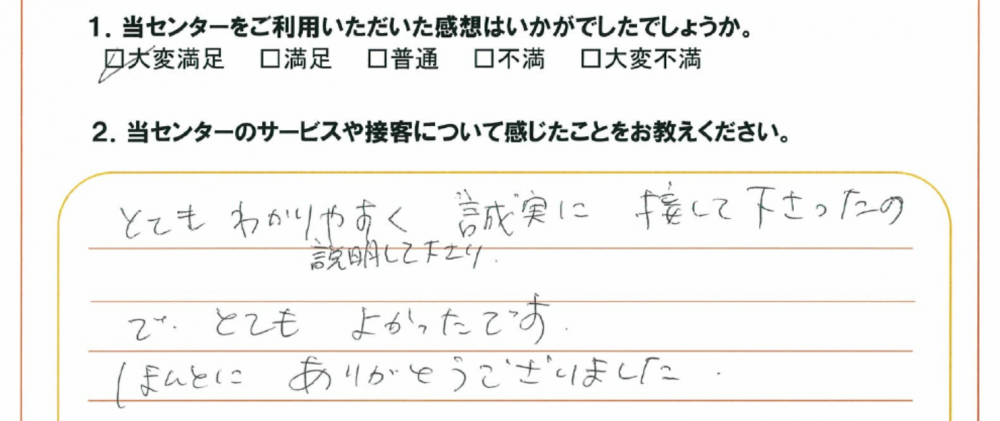 1. 当センターをご利用いただいた感想はいかがでしたでしょうか。
☑大変満足 □満足 □普通 □不満 □大変不満
2. 当センターのサービスや接客について感じたことをお教えください。
とてもわかりやすく 誠実に 接して下さったの
説明して下さり.
で. とても よかったです.
ほんとに ありがとうございました.